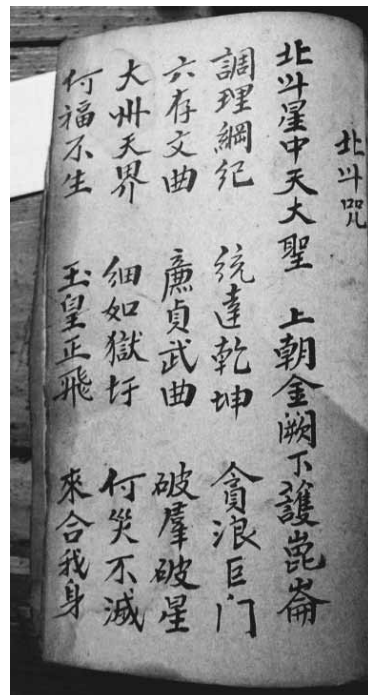 北斗咒
北斗星中天大聖 上朝金闕下護崑崙
調理綱紀 統達乾坤 貪浪巨门
六存文曲 廉貞武曲 破羣破星
大州天界 细如獄圩 何災不滅
何福不生 玉皇正飛 來合我身